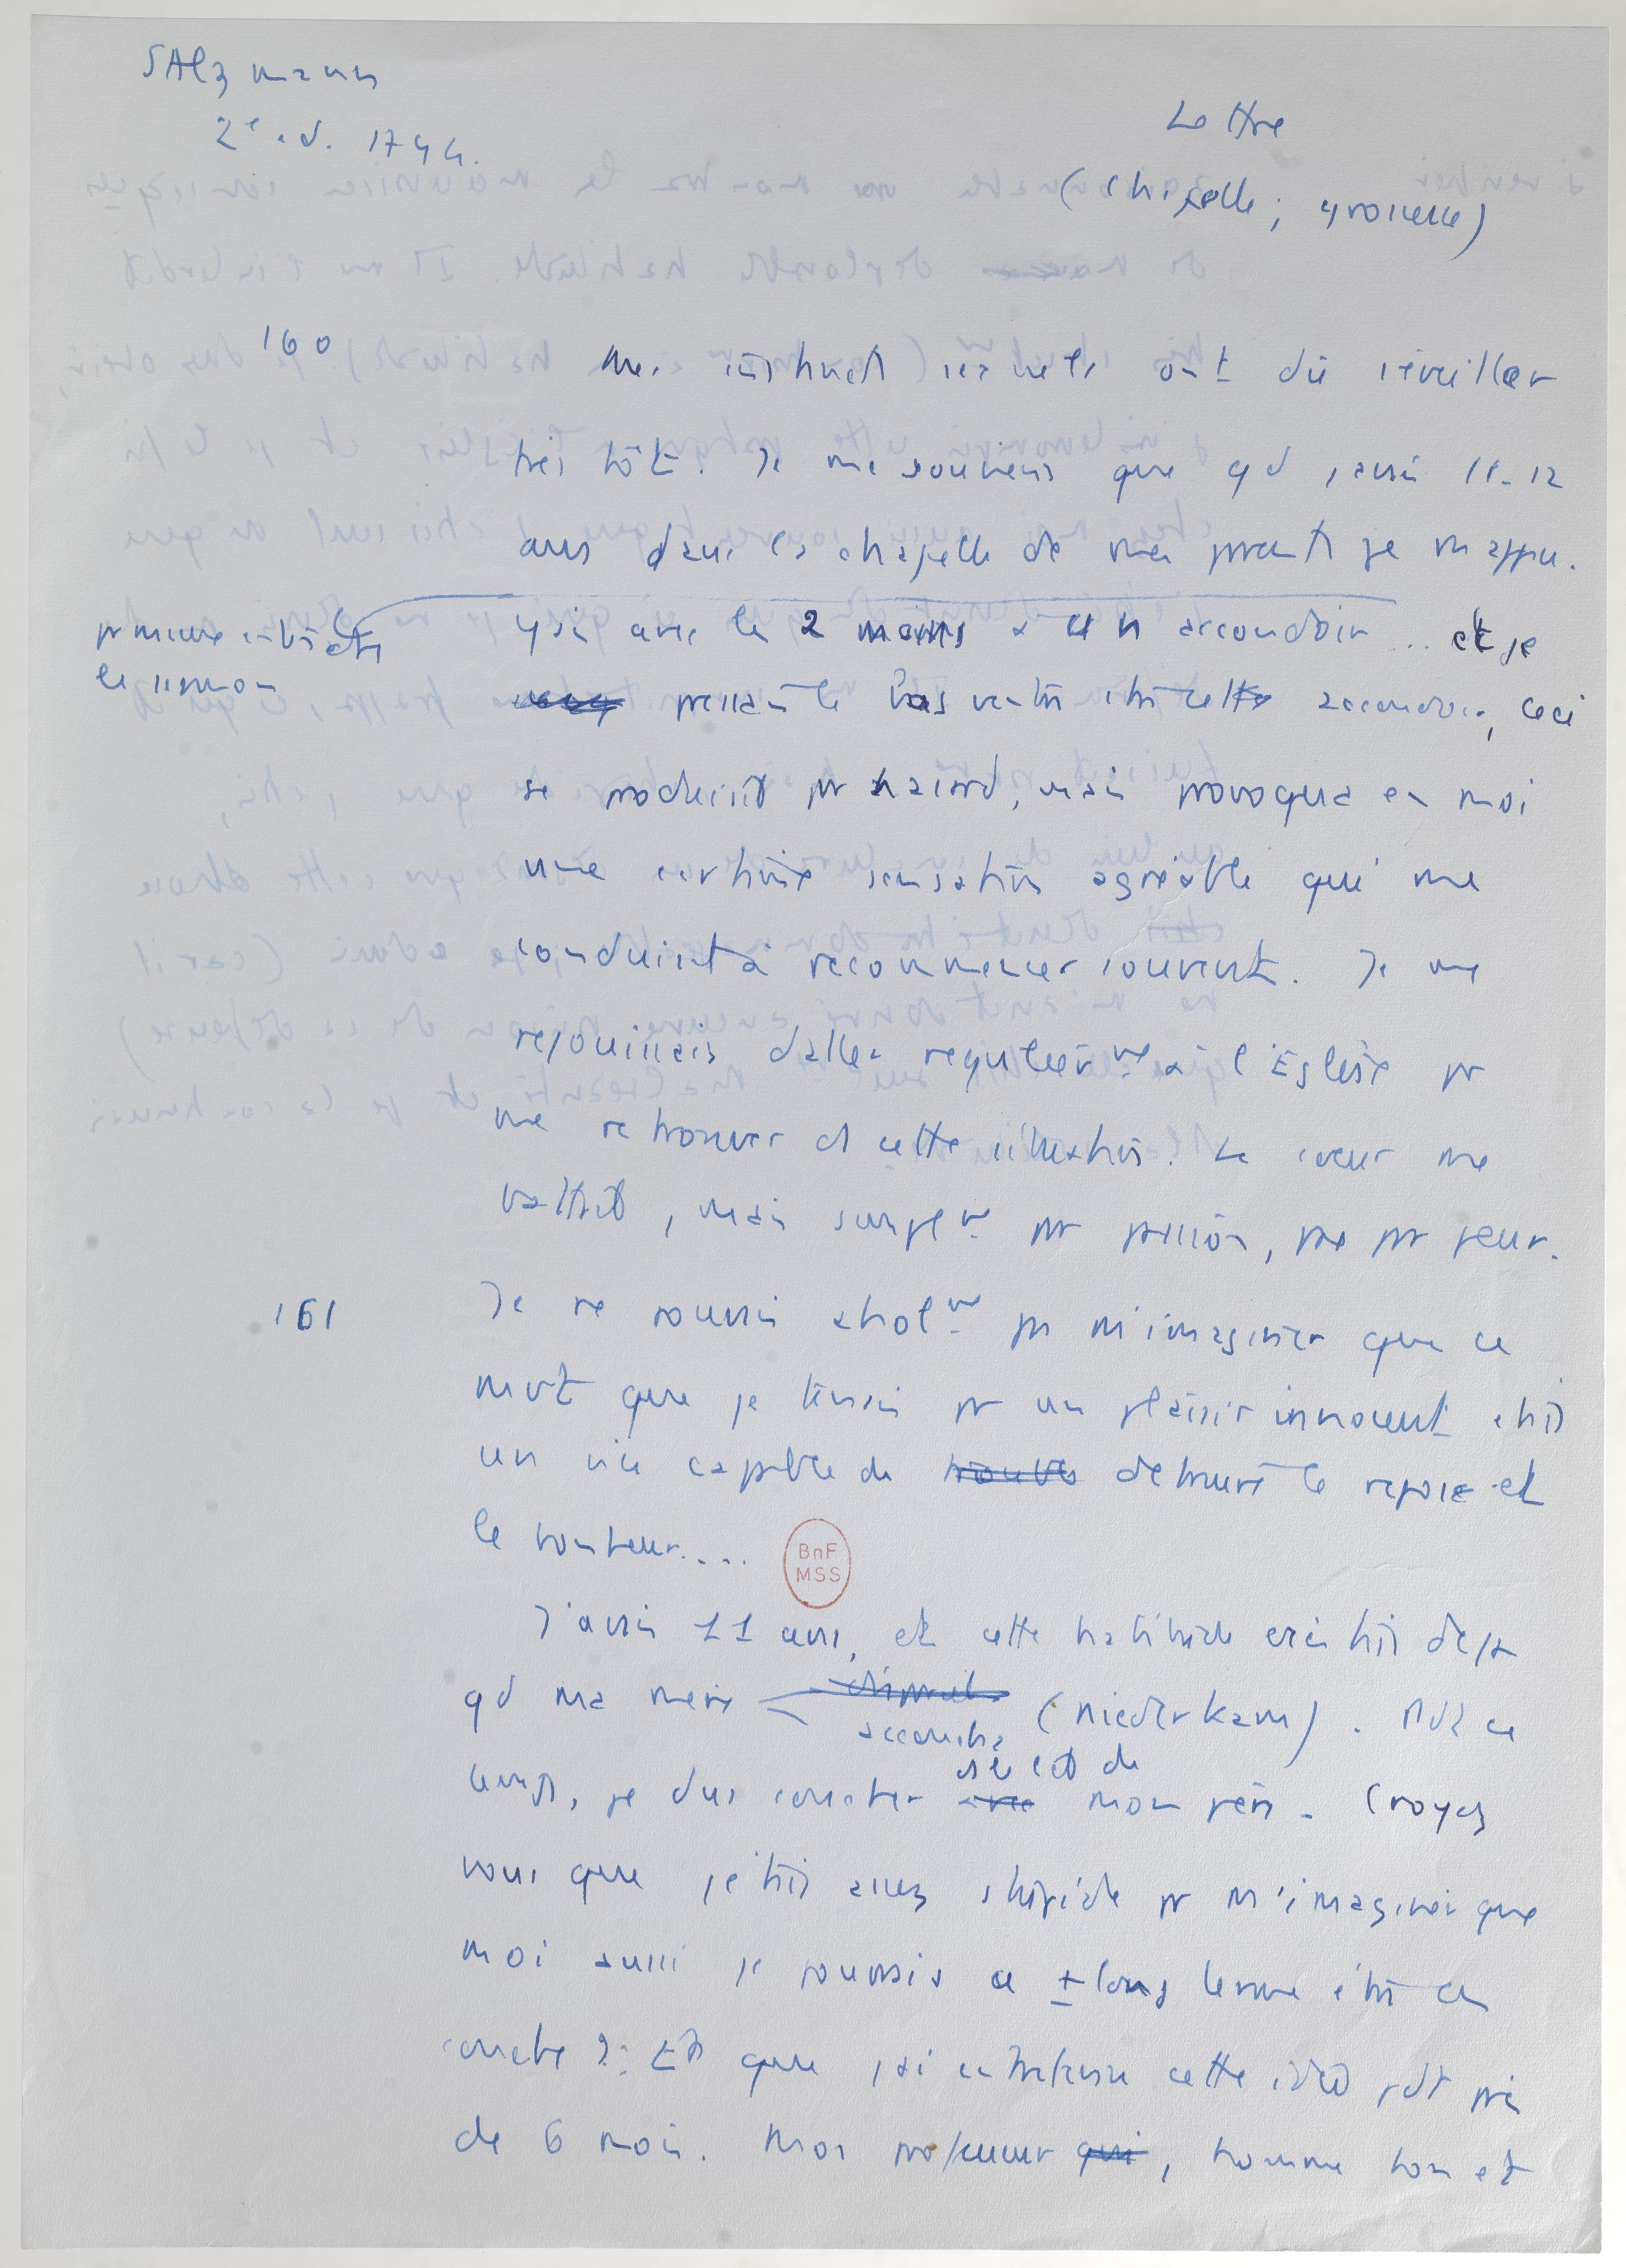 SAlzmann
2e ed. 1794.
Lettre
(chapelle; grossesse)
160
Mes instincts sexuels ont dû s'éveiller
très tôt. Je me souviens que qd j'avais 11-12
ans dans la chapelle de mes parents je m'appu-
yais avec les 2 mains à un accoudoir... et je
pr mieux entendre
le sermon
pressais le bas ventre ctre cette accoudoir, ceci
se produisit pr hazard, mais provoqua en moi
une certaine sensation agréable qui me
conduisit à recommencer souvent. Je me
rejouissais d'aller regulièrmt à l'Eglise pr
me retrouver ds cette situation. Le cœur me
battait, mais simplmt pr passion, pas pr peur.
161
Je ne pouvais absolmt pas m'imaginer que ce
mvt que je tenais pr un plaisir innocent était
un vice capable de troubler detruire le repos et
le bonheur....
BnF
MSS
J'avais 11 ans, et cette habitude existait deja
qd ma mère accoucha (niederkam). Pdt ce
temps, je dus coucher avec à côté de mon père. Croyez
vous que j'étais assez stupide pr m'imaginer que
moi aussi je pouvais a + long terme être en
couche? Et que j'ai entretenu cette idée pdt près
de 6 mois. Mon professeur qui, homme bon et